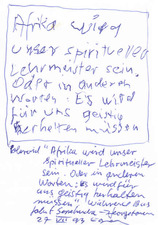 Afrika wird
unser spiritueller
Lehrmeister sein.
Oder in anderen
Worten: Es wird
für uns geistig
herhalten müssen
"Afrika wird unser
Spiritueller Lehrmeister
sein. Oder in anderen
Worten: Es wird für
uns geistig herhalten
müssen" während Bus
fahrt
27 VIII 93